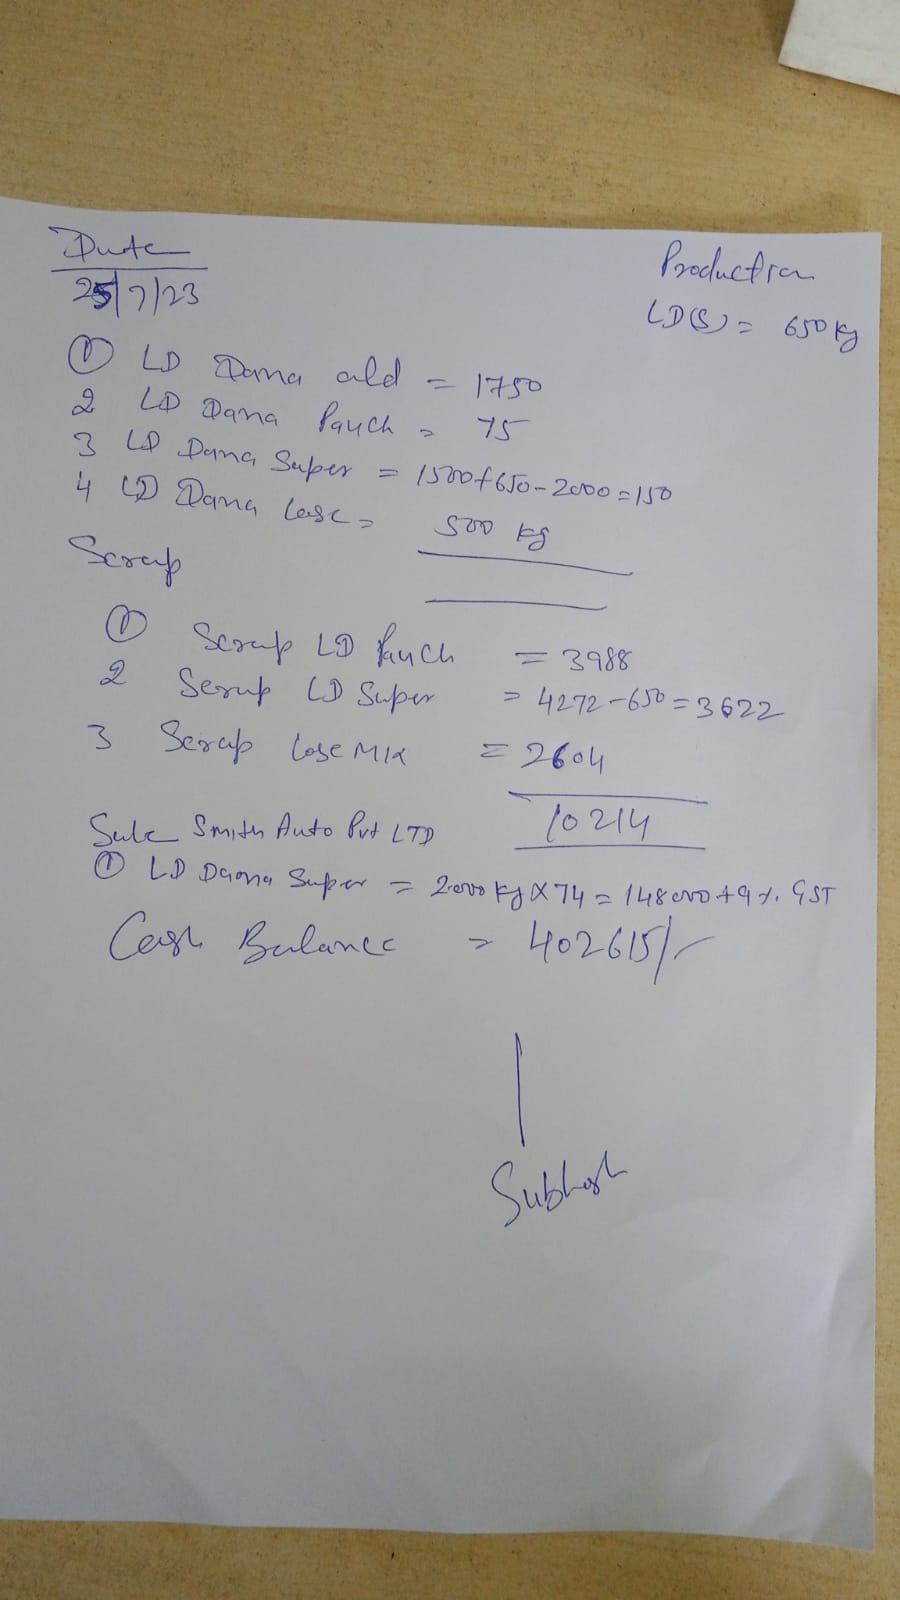 Date
25/7/23
Production
LD(S) = 650 kg
① LD Dana old = 1750
2 LD Dana Pauch = 75
3 LD Dana Super = 1500+650-2000=150
4 LD Dana Lose = 500 kg
Scrap
① Scrap LD Pauch = 3988
2 Scrap LD Super = 4272-650=3622
3 Scrap Lose Mix = 2604
10214
Sale Smith Auto Pvt LTD
① LD Daona Super = 2000 kg X 74 = 148000+9%. GST
Cash Balance = 402615/-
Subhash